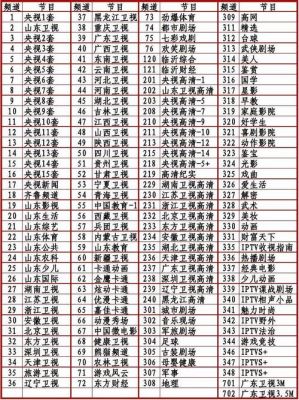 频道 节目 频道 节目 频道 节目 频道 节目
1 央视1套 37 黑龙江卫视 73 劲爆体育 309 高网
2 山东卫视 38 重庆卫视 74 都市剧场 311 精选
3 央视2套 39 广东卫视 75 七彩戏剧 312 台球
4 央视3套 40 广西卫视 76 欢笑剧场 313 武侠剧场
5 央视4套 41 卫视 120 临沂综合 314 美人
6 央视5套 42 卫视 121 临沂财经 315 鉴赏
7 央视6套 43 河北卫视 201 央视高清-1 316 国学
8 央视7套 44 河南卫视 202 山东卫视高清 317 星影
9 央视8套 45 湖北卫视 203 央视高清-5 318 早教
10 央视9套 46 吉林卫视 204 央视高清 319 家庭影院
11 央视10套 47 江西卫视 209 央视高清 320 好学生
12 央视11套 48 山西卫视 210 央视高清 321 喜剧影院
13 央视12套 49 陕西卫视 213 央视高清 322 动作影院
14 央视14套 50 四川卫视 214 央视高清 323 鉴宝
15 央视15套 51 贵州卫视 218 央视高清 324 光影
16 央视 52 云南卫视 219 高清纪实 325 戏曲
17 央视新闻 53 宁夏卫视 229 湖南卫视高清 326 爱生活
18 齐鲁频道 54 青海卫视 230 江苏卫视高清 327 解密
19 山东影视 55 甘肃卫视 231 浙江卫视高清 328 武术
20 山东生活 56 西藏卫视 232 北京卫视高清 329 美妆
21 山东综艺 57 兵团卫视 233 东方卫视高清 330 动画
22 山东体育 58 内蒙古卫视 234 安徽卫视高清 331 财富天下
23 山东公共 59 卫视 235 湖北卫视高清 335 IPTV收视指南
24 山东农科 60 新疆卫视 236 天津卫视高清 336 热播剧场
25 山东少儿 61 卡通动画 237 广东卫视高清 337 经典电影
26 山东国际 62 金鹰卡通 238 深圳卫视高清 338 少儿动画
27 湖南卫视 63 炫动卡通 239 辽宁卫视高清 339 IPTV谍战剧场
28 江苏卫视 64 优漫卡通 240 黑龙江高清 340 IPTV相声小品
29 浙江卫视 65 嘉佳卡通 301 341 魅力时尚
30 安徽卫视 66 动漫秀场 302 音乐现场 342 IPTV野外
31 北京卫视 67 中国微电影 303 军旅剧场 343 IPTV法治
32 东方卫视 68 健康卫视 304 足球 344 游戏竞技
33 深圳卫视 69 熊猫频道 305 古装剧场 346 IPTV5+
34 天津卫视 70 农林卫视 306 母婴健康 347 IPTV5+
35 旅游卫视 71 游戏风云 307 军事 348 IPTV5+
36 辽宁卫视 72 东方财经 308 地理 701 广东卫视3M
702 广东卫视3.5M